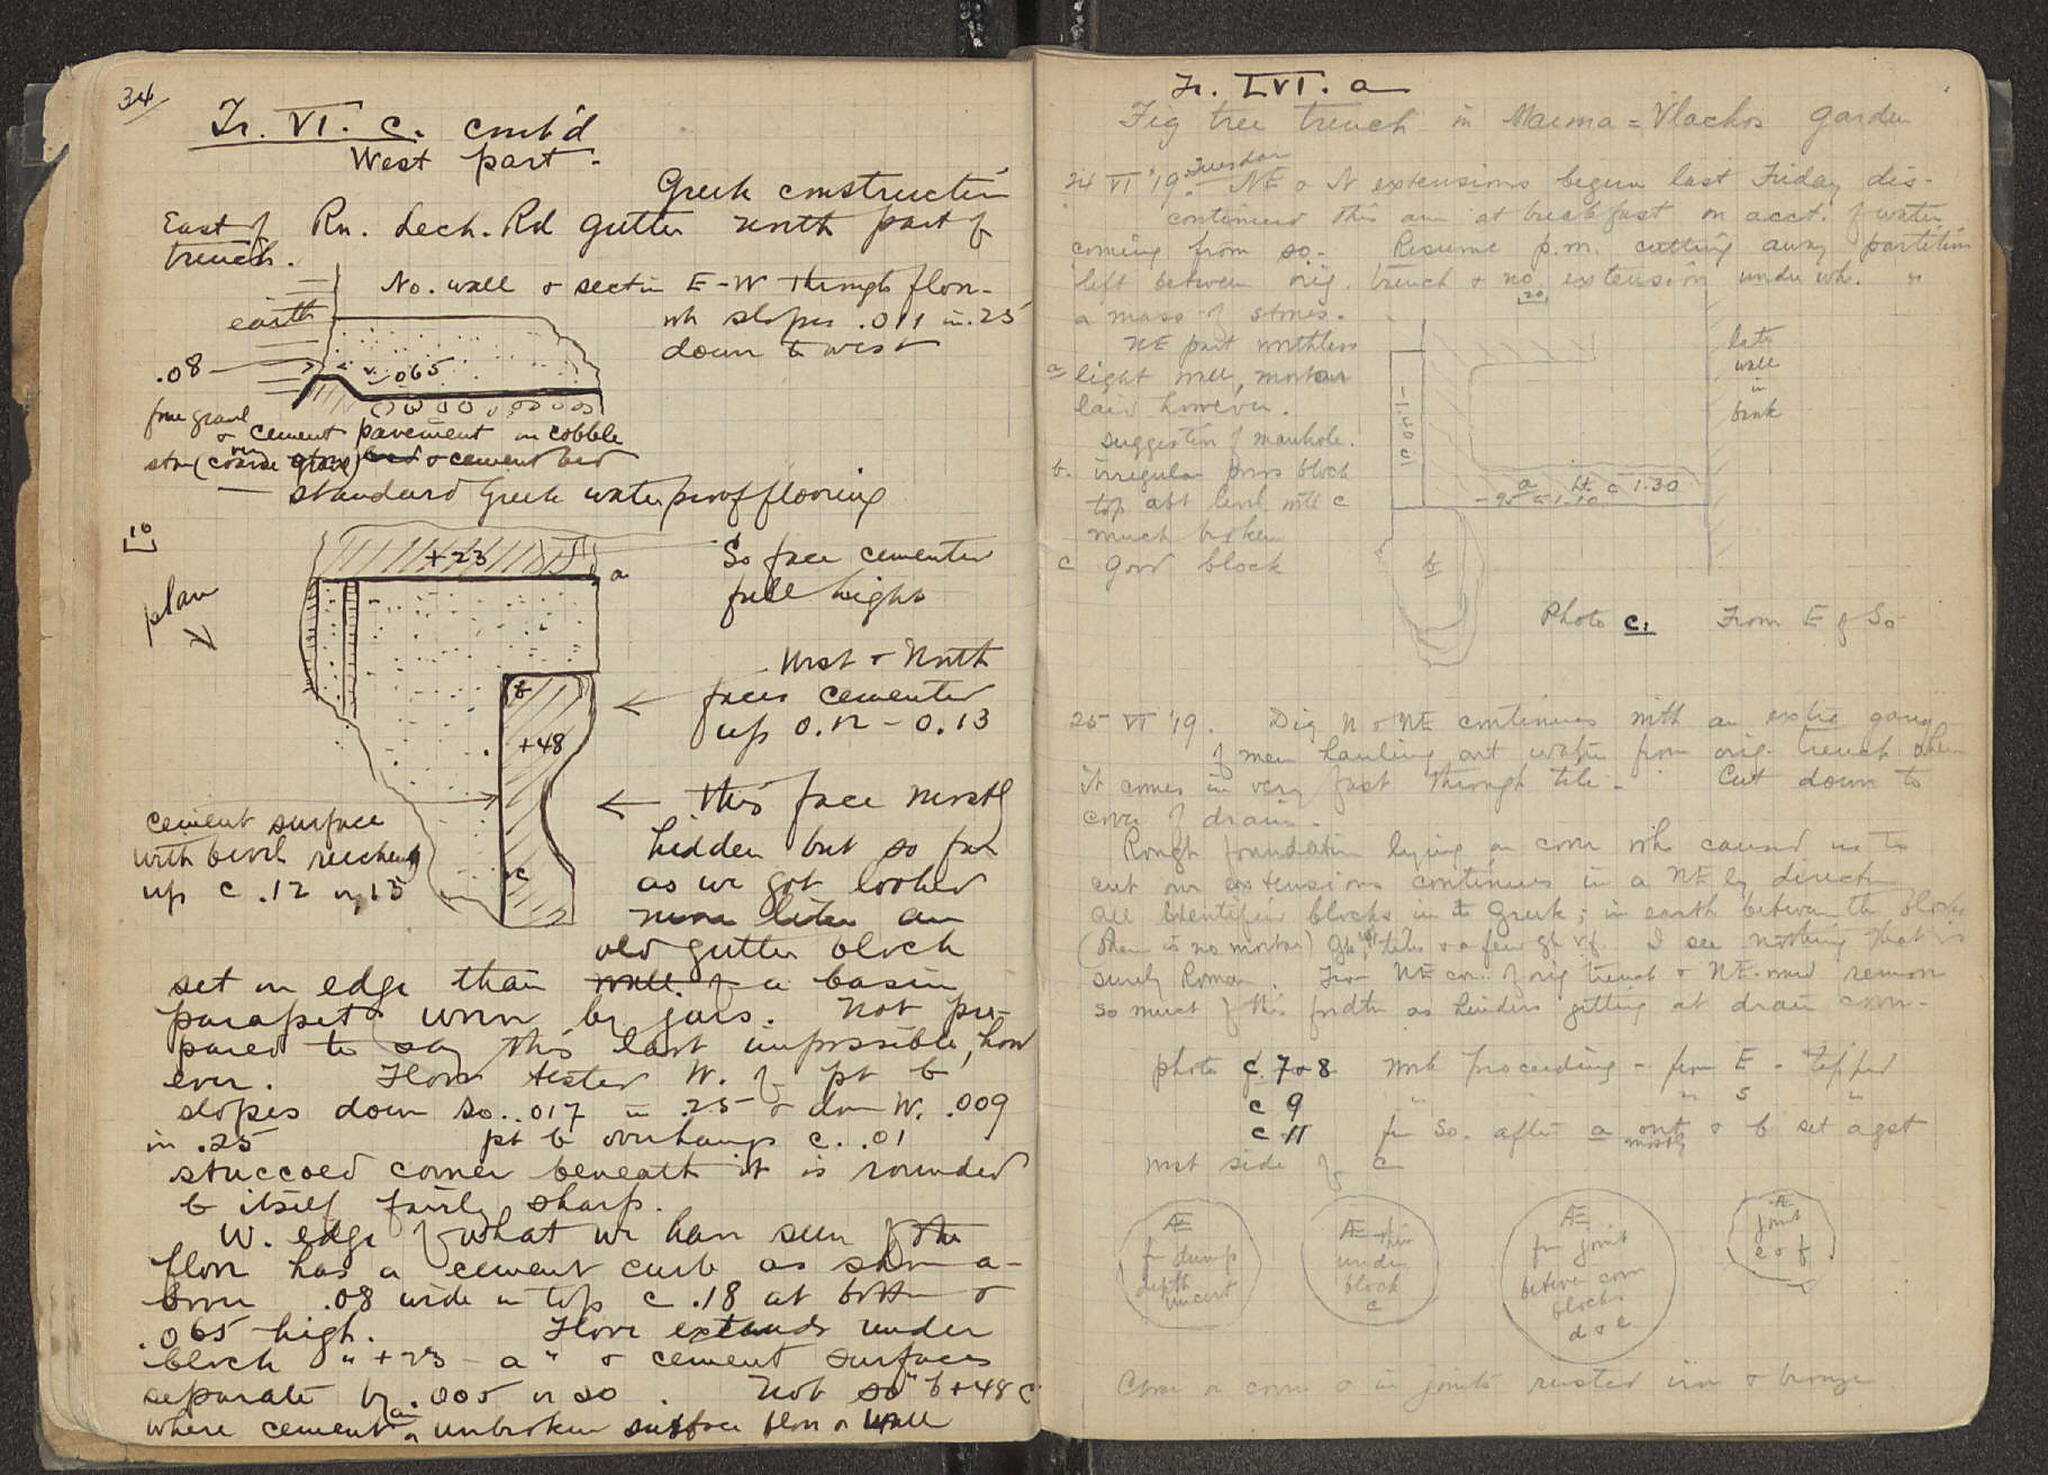 34
Tr. VI. c. cont'd
West part.
Greek construction
East of Rn. Lech. Rd gutter north part of
trench.
No. wall & section E-W through floor
wh slopes .011 in .25
down to west
earth
.08
.065
fine gravel
& cement pavement on cobble
stone (coarse gravel) & cement bed
— standard Greek waterproof flooring
10
plan
+23
a
So face cemented
full height
West & North
faces cemented
up 0.12 - 0.13
b
+48
This face mostly
hidden but so far
as we got looked
more like an
old gutter block
cement surface
with bevel reaching
up c .12 or .13
c
set on edge than wall of a basin
parapet worn by jars. Not pre-
pared to say this last impossible, how
ever. Floor tested W. of pt b
slopes down so. .017 in .25 & down W. .009
in .25 pt b overhangs c. .01
stuccoed corner beneath it is rounded
b itself fairly sharp.
W. edge of what we have seen of the
floor has a cement curb as shown a-
bove .08 wide on top c .18 at bottom &
.065 high. Floor extends under
block "+23 - a" & cement surfaces
separate by .005 or so. Not so "b+48 c
where cement an unbroken surface floor & wall
Tr. LVI. a
Fig tree trench in Mama = Vlachos garden
24 VI '19. Tuesday NE & N extensions begun last Friday dis-
continued this am at breakfast on acct. of water
coming from so. Resume p.m. cutting away partition
left between orig. trench & no extension under wh.
20
a mass of stones.
NE part worthless
a light wall, mortar
laid however.
suggestion of manhole.
b. irregular poros block
top abt level with c
much broken
c good block
late
wall
in
bank
c -1.40
a ht c 1.30
-90 to -1.10
b
Photo c. From E & So
25 VI '19. Dig N & NE continues with an extra gang
of men hauling out water from orig. trench when
it comes in very fast through tile. Cut down to
cover of drain.
Rough foundation lying on cover wh caused us to
cut our extensions continues in a NE ly direct
all identified blocks in it Greek; in earth between the blocks
(there is no mortar) Gk tiles & a few gk v.f. I see nothing that is
surely Roman. From NE cor. of orig trench & NE ward remove
so much of this fndtn as hinders getting at drain cover-
photo c. 7 & 8 Work proceeding - from E - tipped
c 9 " " " S "
c 11 fr So. after a out mostly & b set agst
west side of c
AE
fr dump
depth
uncert
AE thin
under
block
c
AE
fr joint
between cover
blocks
d & e
AE
joint
e & f
Close on cover & in joints rusted iron & bronze